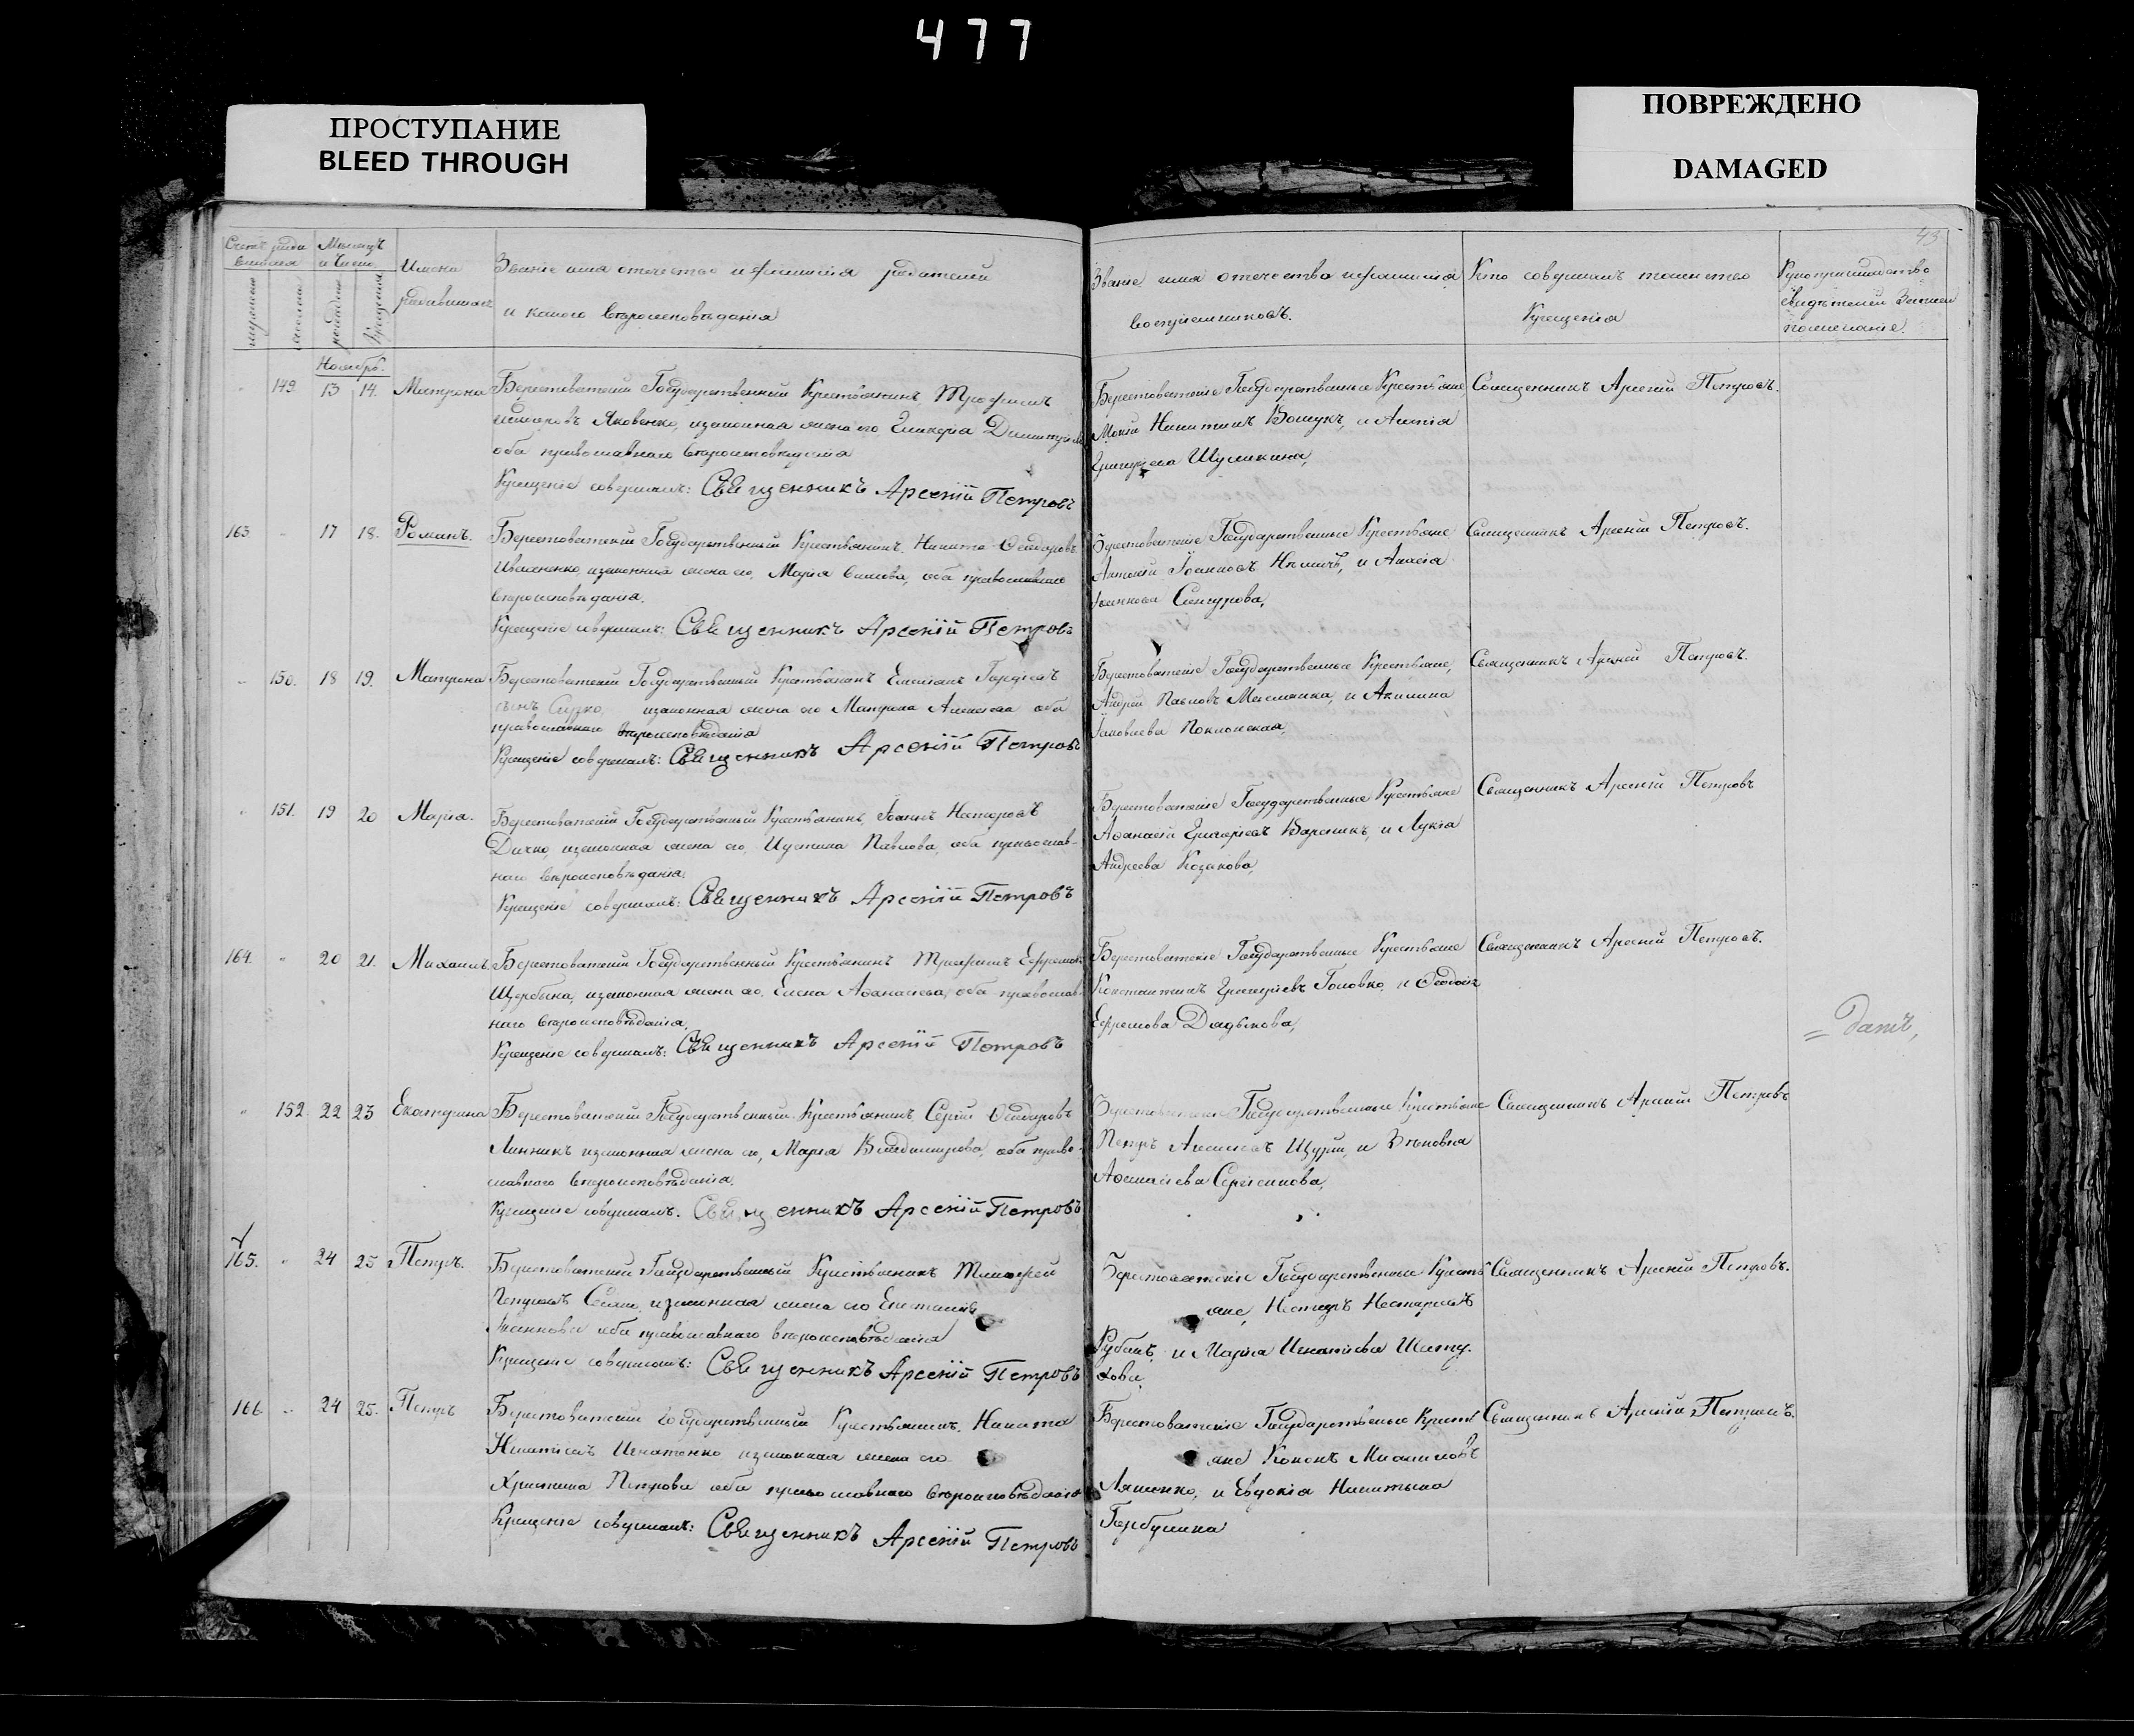 477
ПРОСТУПАНИЕ
BLEED THROUGH
ПОВРЕЖДЕНО
DAMAGED
43
Счетъ роди
вшихся
Мѣсяцъ
и число
мужеска
женска
рожденія
крещенія
Имена
родившихся
Званіе имя отечество и фамилія родителей
и какого вѣроисповѣданія
Званіе имя отечество и фамилія
воспріемниковъ.
Кто совершалъ таинство
Крещенія
Рукоприкладство
свидѣтелей записи
Ноябрь.
149 13 14. Матрона
Берестоватскій Государственный Крестьянинъ Трофимъ
Яковенко, и законная жена его Гликерія Димитріева
оба православнаго вѣроисповѣданія
Крещеніе совершалъ: Священникъ Арсеній Петровъ
Берестоватскіе Государственные Крестьяне
Мокій Никитинъ Вощукъ, и Анна
Григорьева Шуликина,
Священникъ Арсеній Петровъ.
163. 17 18. Романъ.
Берестоватскій Государственный Крестьянинъ Никита Ѳеодоровъ
Иваненко, и законная жена его, Марія Саввова, оба православнаго
вѣроисповѣданія.
Крещеніе совершалъ: Священникъ Арсеній Петровъ
Берестоватскіе Государственные Крестьяне
Антоній Іоанновъ Нѣмичъ, и Анастасія
Іоаннова Сингурова,
Священникъ Арсеній Петровъ.
150. 18 19. Матрона
Берестоватскій Государственный Крестьянинъ Емеліанъ
и законная жена его Матрона Алексѣева оба
православнаго вѣроисповѣданія
Крещеніе совершалъ: Священникъ Арсеній Петровъ
Берестоватскіе Государственные Крестьяне,
Андрей Павловъ и Акилина
Іаковлева Поклонская,
Священникъ Арсеній Петровъ.
151. 19 20 Марія.
Берестоватскій Государственный Крестьянинъ, Іоаннъ Несторовъ
Дичко, и законная жена его, Иустина Павлова, оба православ-
наго вѣроисповѣданія.
Крещеніе совершалъ: Священникъ Арсеній Петровъ
Берестоватскіе Государственные Крестьяне
Аѳанасій Григорьевъ Варникъ, и Лукія
Андреева Козакова,
Священникъ Арсеній Петровъ
164. 20 21. Михаилъ.
Берестоватскій Государственный Крестьянинъ Трофимъ Ефремовъ
Щербина, и законная жена его, Елена Аѳанасіева, оба православ-
наго вѣроисповѣданія,
Крещеніе совершалъ: Священникъ Арсеній Петровъ
Берестоватскіе Государственные Крестьяне
Константинъ Григорьевъ Головко, и Ѳеодосія
Ефремова Дадыкова,
Священникъ Арсеній Петровъ.
= Данъ,
152. 22 23 Екатерина
Берестоватскій Государственный Крестьянинъ Сергій Ѳеодоровъ
Линникъ и законная жена его, Марія Владимирова, оба право-
славнаго вѣроисповѣданія.
Крещеніе совершалъ. Священникъ Арсеній Петровъ
Берестоватскіе Государственные Крестьяне
Петръ Алексѣевъ Щуръ, и Зиновія
Аѳанасіева Сергіенкова,
Священникъ Арсеній Петровъ
165. 24 25 Петръ.
Берестоватскій Государственный Крестьянинъ Тимофей
Петровъ и законная жена его Епистимія
Іоаннова оба православнаго вѣроисповѣданія
Крещеніе совершалъ: Священникъ Арсеній Петровъ
Берестоватскіе Государственные Кресть
яне, Несторъ Несторовъ
Рубанъ, и Марія Игнатіева Шапу-
хова,
Священникъ Арсеній Петровъ.
166. 24 25. Петръ
Берестоватскій Государственный Крестьянинъ, Никита
Игнатенко и законная жена его
Христина Петрова оба православнаго вѣроисповѣданія
Крещеніе совершалъ: Священникъ Арсеній Петровъ
Берестоватскіе Государственные Кресть
яне Кононъ Михаиловъ
Ляшенко, и Евдокія Никитина
Горбунина
Священникъ Арсеній Петровъ.